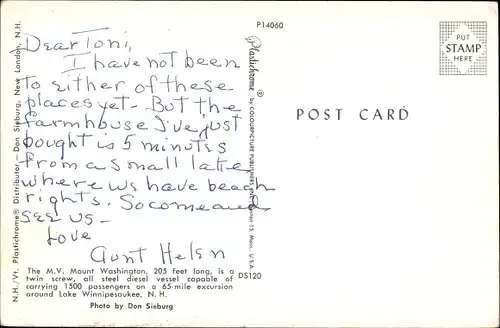 P14060
Dear Toni,
I have not been
to either of these
places yet - But the
farmhouse I've just
bought is 5 minutes
from a small lake,
where we have beach
rights. So come and
see us -
Love
Aunt Helen
The M.V. Mount Washington, 205 feet long, is a
twin screw, all steel diesel vessel capable of
carrying 1500 passengers on a 65-mile excursion
around Lake Winnipesaukee, N. H.
Photo by Don Sieburg
DS120
N.H./Vt. Plastichrome® Distributor - Don Sieburg, New London, N.H.
Plastichrome® by COLOURPICTURE PUBLISHERS, INC., Boston 15, Mass., U.S.A.
POST CARD
PUT
STAMP
HERE